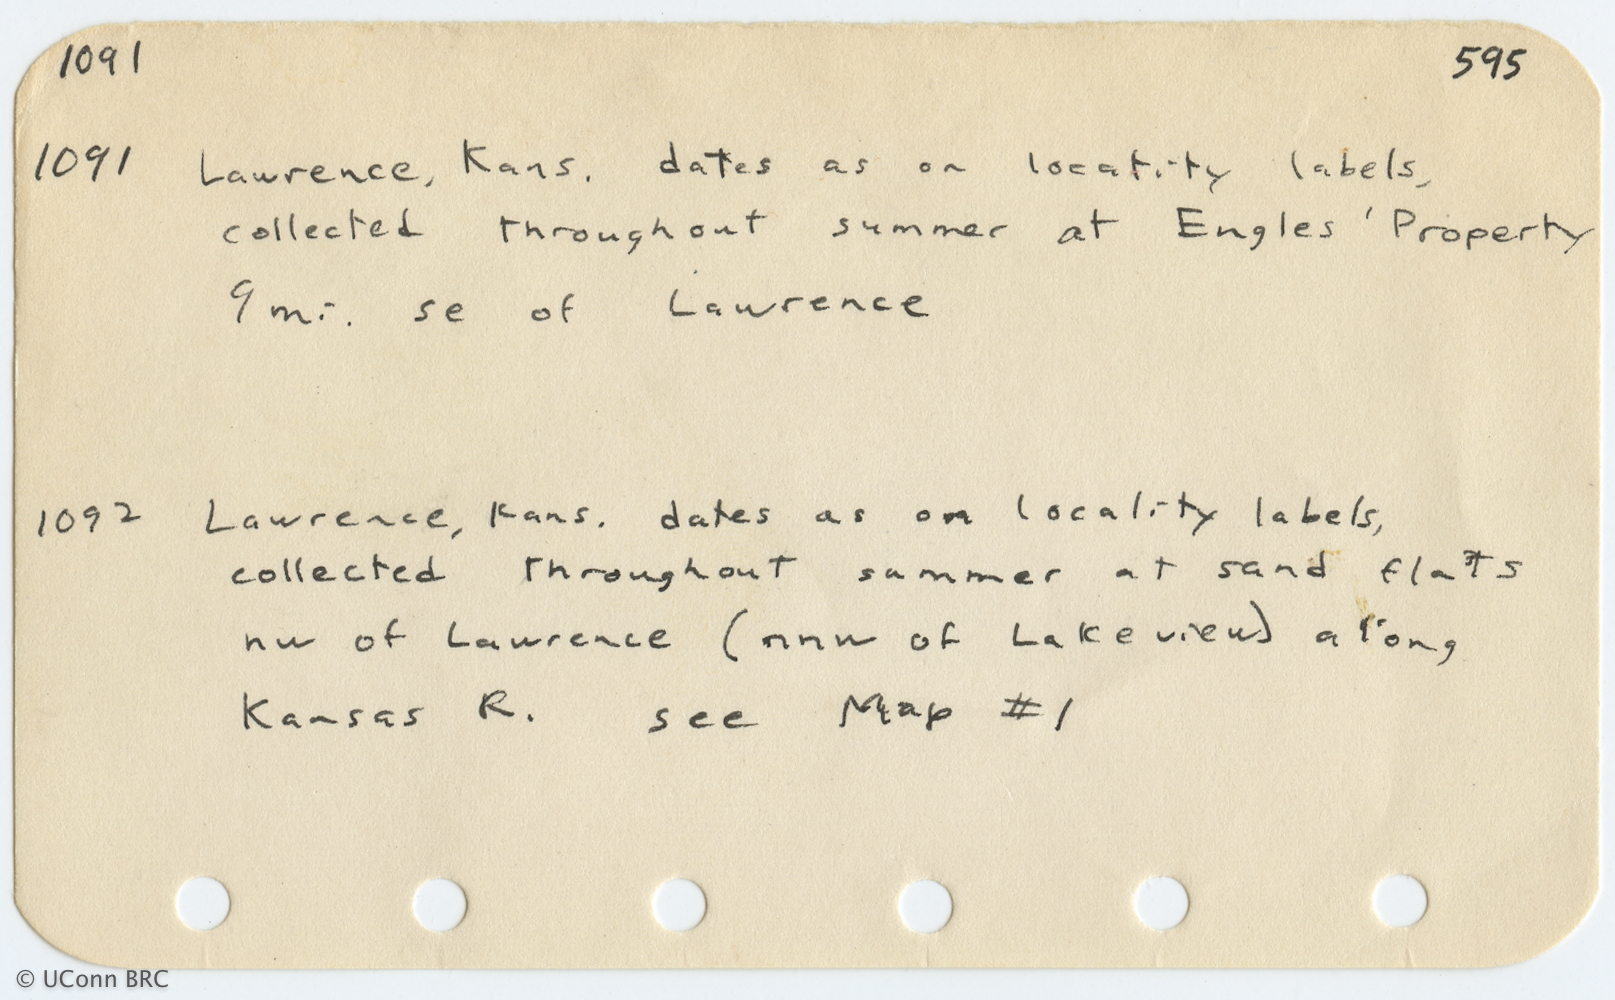 1091 595
1091 Lawrence, Kans. dates as on locatity labels,
collected throughout summer at Engles' Property
9 mi. se of Lawrence
1092 Lawrence, Kans. dates as on locality labels,
collected throughout summer at sand flats
nw of Lawrence (nnw of Lakeview) along
Kansas R. see Map #1
© UConn BRC